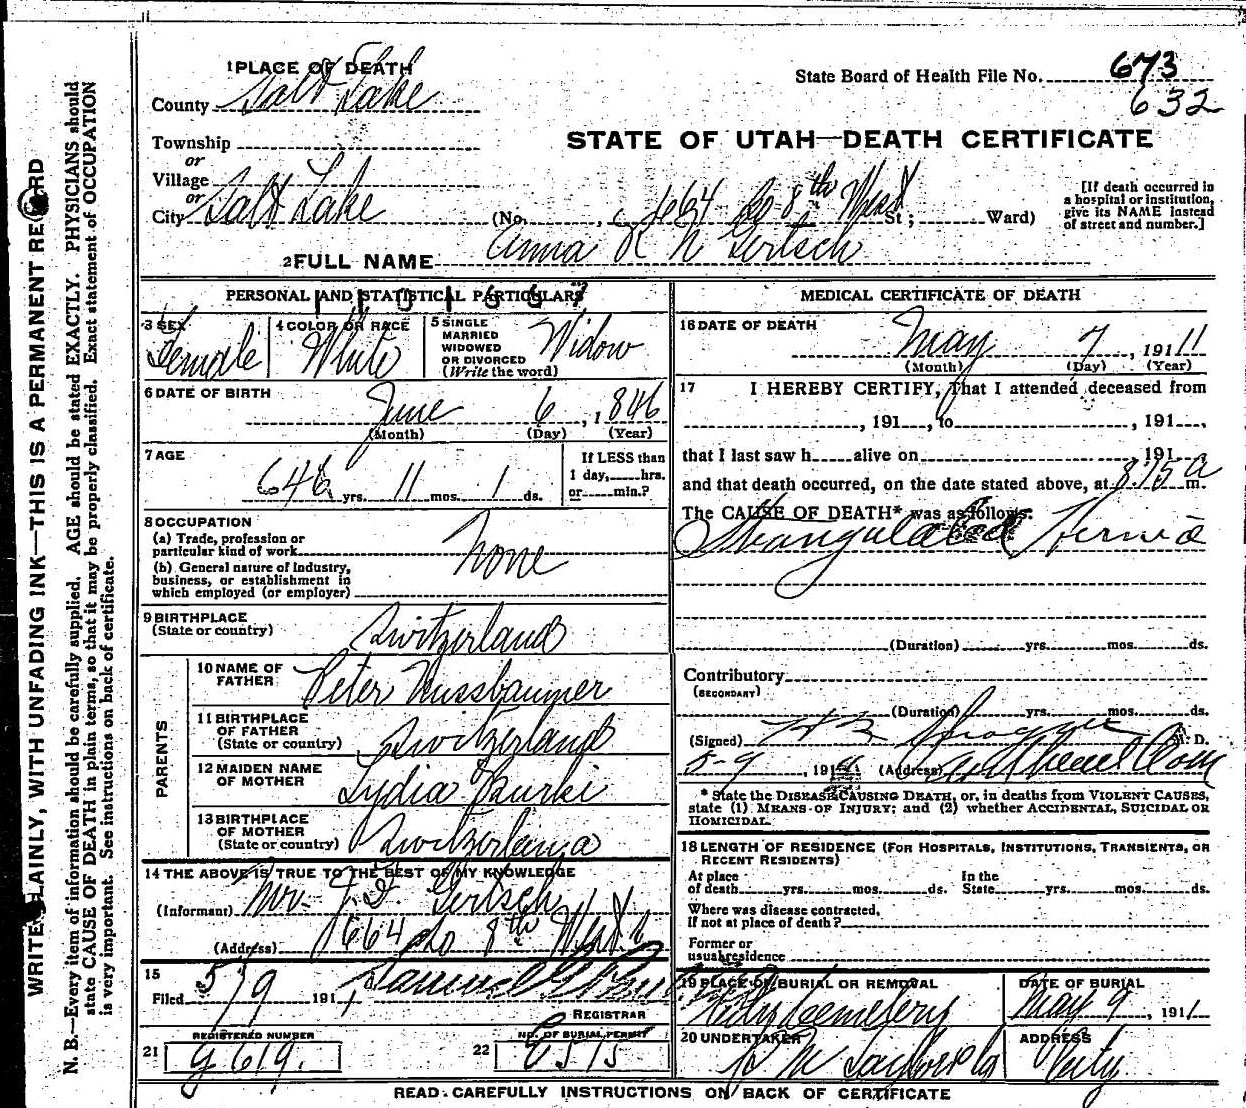 1 PLACE OF DEATH
County Salt Lake
State Board of Health File No. 673
632
STATE OF UTAH—DEATH CERTIFICATE
Township
or
Village
or
City Salt Lake (No. 1664 So 8th West St; Ward)
[If death occurred in a hospital or institution, give its NAME instead of street and number.]
2 FULL NAME Anna R N Gertsch
PERSONAL AND STATISTICAL PARTICULARS
3 SEX Female
4 COLOR OR RACE White
5 SINGLE MARRIED WIDOWED OR DIVORCED (Write the word) Widow
6 DATE OF BIRTH June 6, 1846
(Month) (Day) (Year)
7 AGE 64 yrs. 11 mos. 1 ds.
If LESS than 1 day, hrs. or min.?
8 OCCUPATION
(a) Trade, profession or particular kind of work None
(b) General nature of Industry, business, or establishment in which employed (or employer)
9 BIRTHPLACE (State or country) Switzerland
PARENTS
10 NAME OF FATHER Peter Nussbaumer
11 BIRTHPLACE OF FATHER (State or country) Switzerland
12 MAIDEN NAME OF MOTHER Lydia Burki
13 BIRTHPLACE OF MOTHER (State or country) Switzerland
14 THE ABOVE IS TRUE TO THE BEST OF MY KNOWLEDGE
(Informant) Mr. Gertsch
(Address) 1664 So 8th West
15
Filed 5/9 1911 Samuel G
REGISTRAR
REGISTERED NUMBER
21 G 619.
NO. OF BURIAL PERMIT
22 C515
MEDICAL CERTIFICATE OF DEATH
16 DATE OF DEATH
May 7, 1911
(Month) (Day) (Year)
17 I HEREBY CERTIFY, That I attended deceased from
, 191 , to , 191 ,
that I last saw h alive on 191
and that death occurred, on the date stated above, at 8.15 a m.
The CAUSE OF DEATH* was as follows:
Strangulated Hernia
(Duration) yrs. mos. ds.
Contributory
(SECONDARY)
(Duration) yrs. mos. ds.
(Signed) Sprague M. D.
5-9, 191 (Address)
* State the DISEASE CAUSING DEATH, or, in deaths from VIOLENT CAUSES, state (1) MEANS OF INJURY; and (2) whether ACCIDENTAL, SUICIDAL OR HOMICIDAL.
18 LENGTH OF RESIDENCE (FOR HOSPITALS, INSTITUTIONS, TRANSIENTS, OR RECENT RESIDENTS)
At place of death yrs. mos. ds. In the State yrs. mos. ds.
Where was disease contracted, If not at place of death?
Former or usual residence
19 PLACE OF BURIAL OR REMOVAL City Cemetery
DATE OF BURIAL May 9, 1911
20 UNDERTAKER S M Taylor & Co
ADDRESS City
READ CAREFULLY INSTRUCTIONS ON BACK OF CERTIFICATE
WRITE PLAINLY, WITH UNFADING INK—THIS IS A PERMANENT RECORD
N. B.—Every item of information should be carefully supplied. AGE should be stated EXACTLY. PHYSICIANS should
state CAUSE OF DEATH in plain terms, so that it may be properly classified. Exact statement of OCCUPATION
is very important. See instructions on back of certificate.